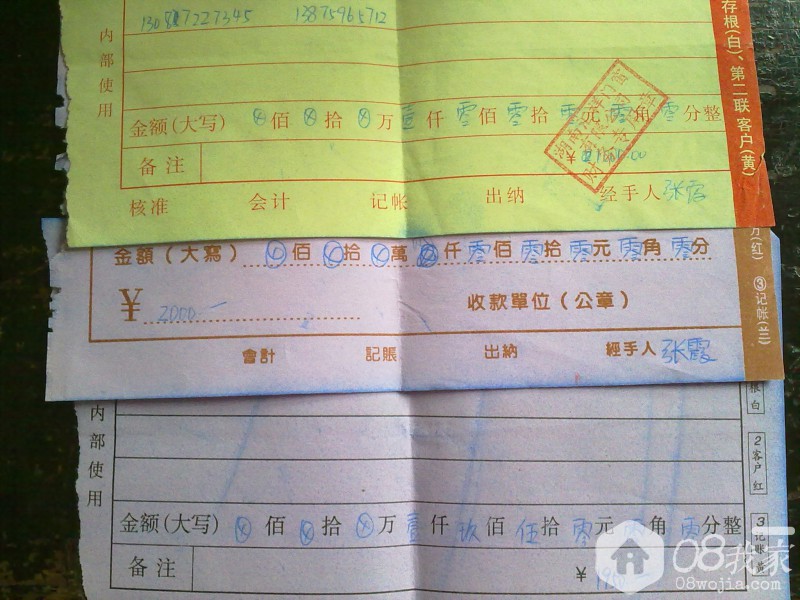 13875965712
内部使用
存根(白)、第二联客户(黄)
金额(大写) ⊗佰⊗拾⊗万壹仟零佰零拾零元零角零分整
备注
核准 会计 记帐 出纳 经手人 张霞
金額(大寫) ⊗佰⊗拾⊗萬 仟零佰零拾零元零角零分
¥ 2000.—
收款單位(公章)
會計 記賬 出納 經手人 张霞
(红) ③记帐(兰)
内部使用
根白
2客户红
3记账
金额(大写) ⊗佰⊗拾⊗万壹仟玖佰伍拾零元 角零分整
备注
¥
08我家
08wojia.com